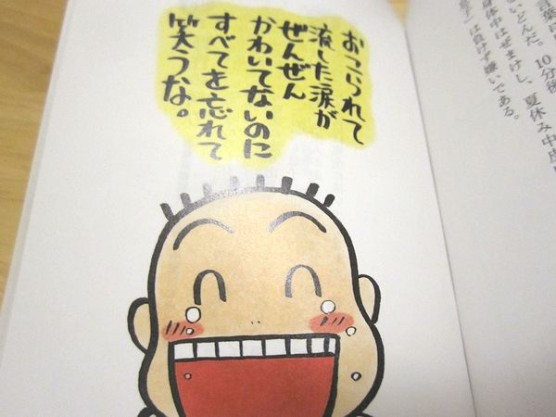 おこられて
流した涙が
ぜんぜん
かわいてないのに
すべてを忘れて
笑うな。
いどんだ。10分後
身体中はぜまけし、夏休み中
は負けず嫌いである。